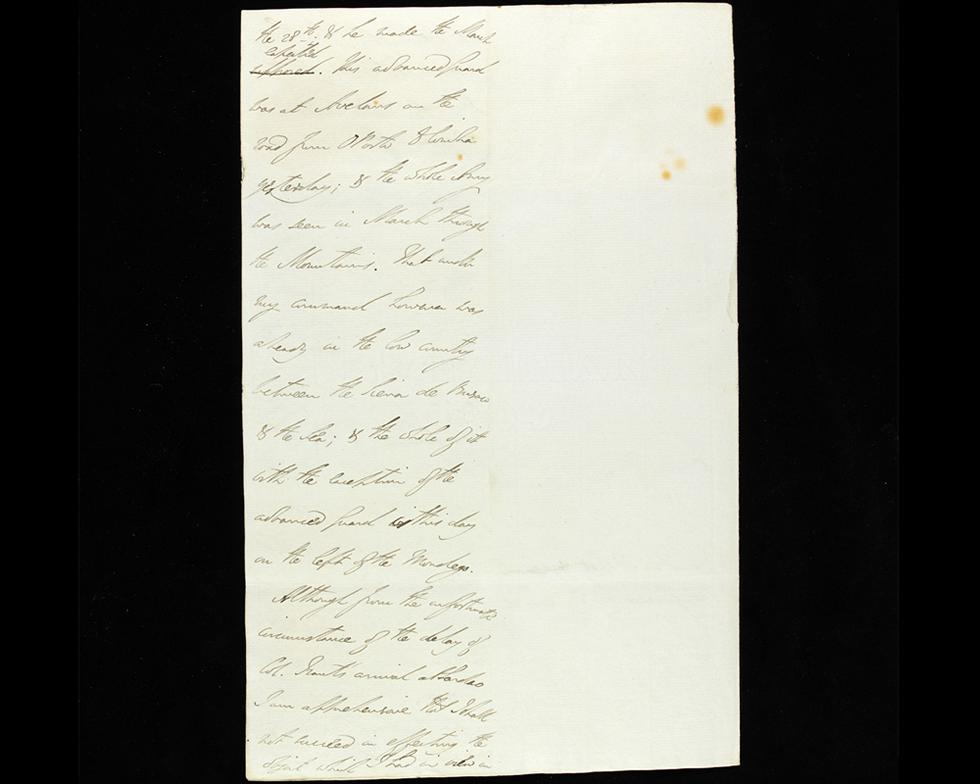 the 28th. & he made the March
expected
supposed. His advanced Guard
was at Avelans on the
road from OPorto & Coimbra
yesterday; & the whole Army
was seen in March through
the Mountains. That under
my command however was
already in the low country
between the Sierra de Busaco
& the Sea; & the whole of it
with the exception of the
advanced Guard is this day
on the left of the Mondego.
Although from the unfortunate
circumstance of the delay of
Col. Trant's arrival at Sardao
I am apprehensive that I shall
not succeed in effecting the
object which I had in view in